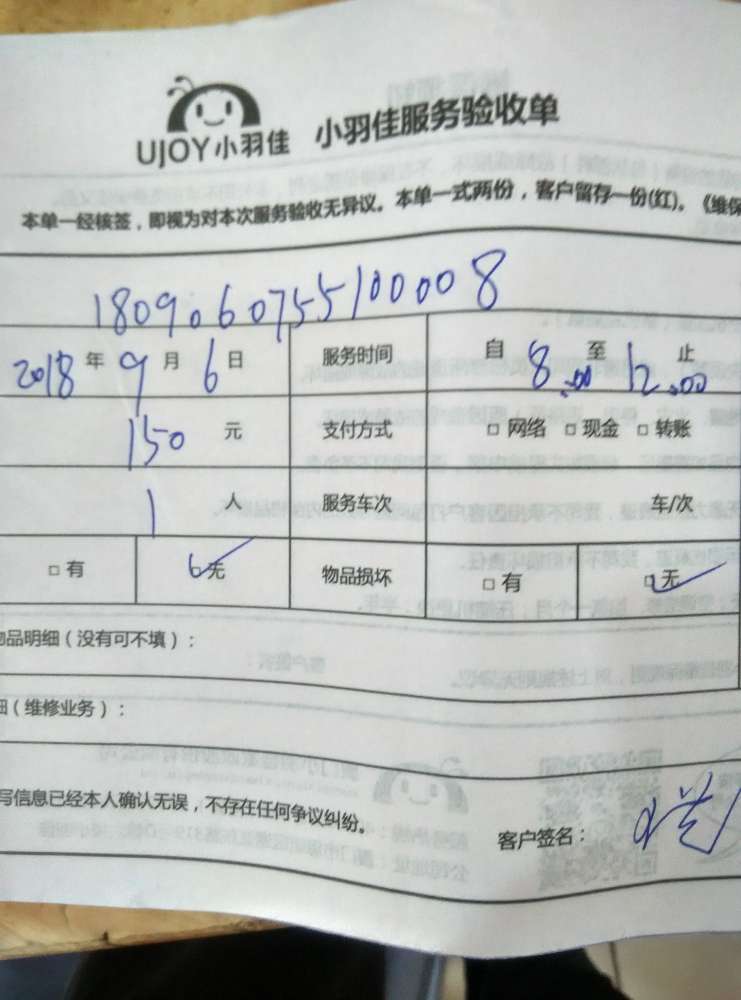 UJOY小羽佳 小羽佳服务验收单
本单一经核签，即视为对本次服务验收无异议。本单一式两份，客户留存一份(红)。《维保
1809060755100008
2018 年 9 月 6 日 服务时间 自 8:00 至 12:00 止
150 元 支付方式 □ 网络 □ 现金 □ 转账
1 人 服务车次 车/次
□ 有 □ 无 ✓ 物品损坏 □ 有 □ 无 ✓
品明细（没有可不填）：
（维修业务）：
写信息已经本人确认无误，不存在任何争议纠纷。
客户签名：